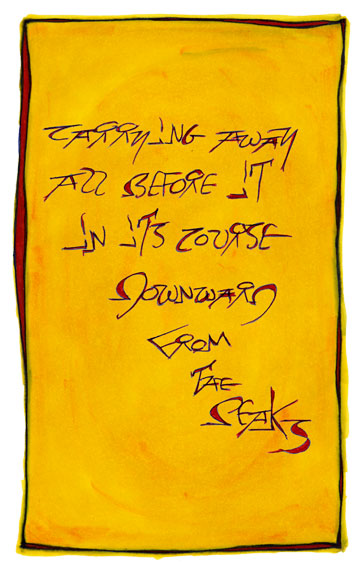 CARRYING AWAY
ALL BEFORE IT
IN ITS COURSE
DOWNWARD
FROM
THE
PEAKS